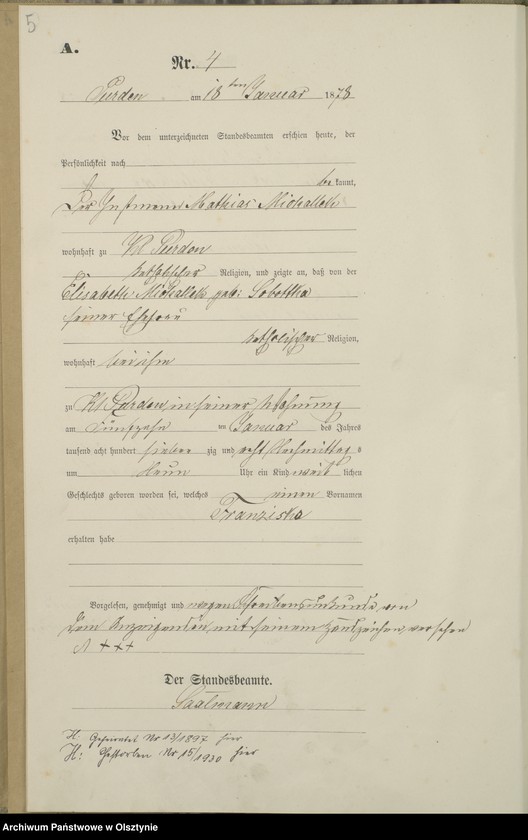 5
A.
Nr. 4
Purden am 18ten Januar 1878
Vor dem unterzeichneten Standesbeamten erschien heute, der
Persönlichkeit nach
bekannt,
Der Instmann Mathias Michallek
wohnhaft zu Kl Purden
katholischer Religion, und zeigte an, daß von der
Elisabeth Michallek geb: Sobottka
seiner Ehefrau
katholischer Religion,
wohnhaft bei ihm
zu Kl Purden, in seiner Wohnung
am fünfzehn ten Januar des Jahres
tausend acht hundert sieben zig und acht, Nachmittag s
um Neun Uhr ein Kind weib lichen
Geschlechts geboren worden sei, welches einen Vornamen
Franziska
erhalten habe
Vorgelesen, genehmigt und wegen Schreibensunkunde, von
dem Anzeigenden, mit seinem Handzeichen, versehen
+++
Der Standesbeamte.
Saalmann
H: Geheiratet Nr 13/1897 hier
H: Gestorben Nr 15/1930 hier
Archiwum Państwowe w Olsztynie